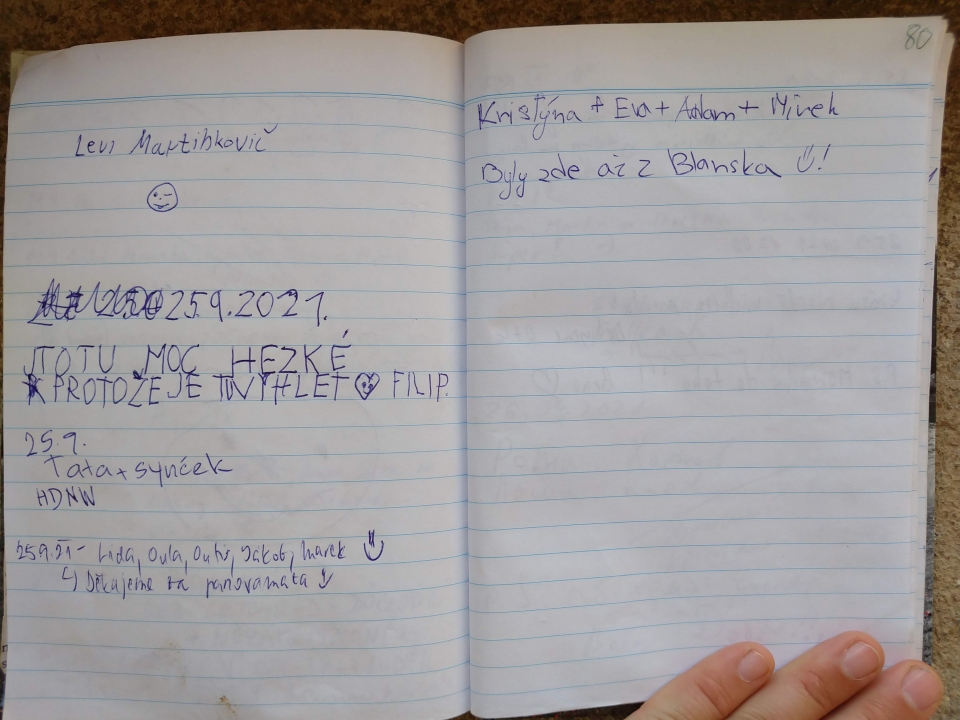 Levi Martinkovič
25.9.2021.
JTOTU MOC HEZKÉ
PROTOŽEJE TUVÝHLET FILIP.
25.9.
Tata + synček
HDNW
25.9.21 - Lída, Jakob, Marek
↳ Děkujeme za panoramata
80
Kristýna + Eva + Adam + Mirek
Byly zde až z Blanska !